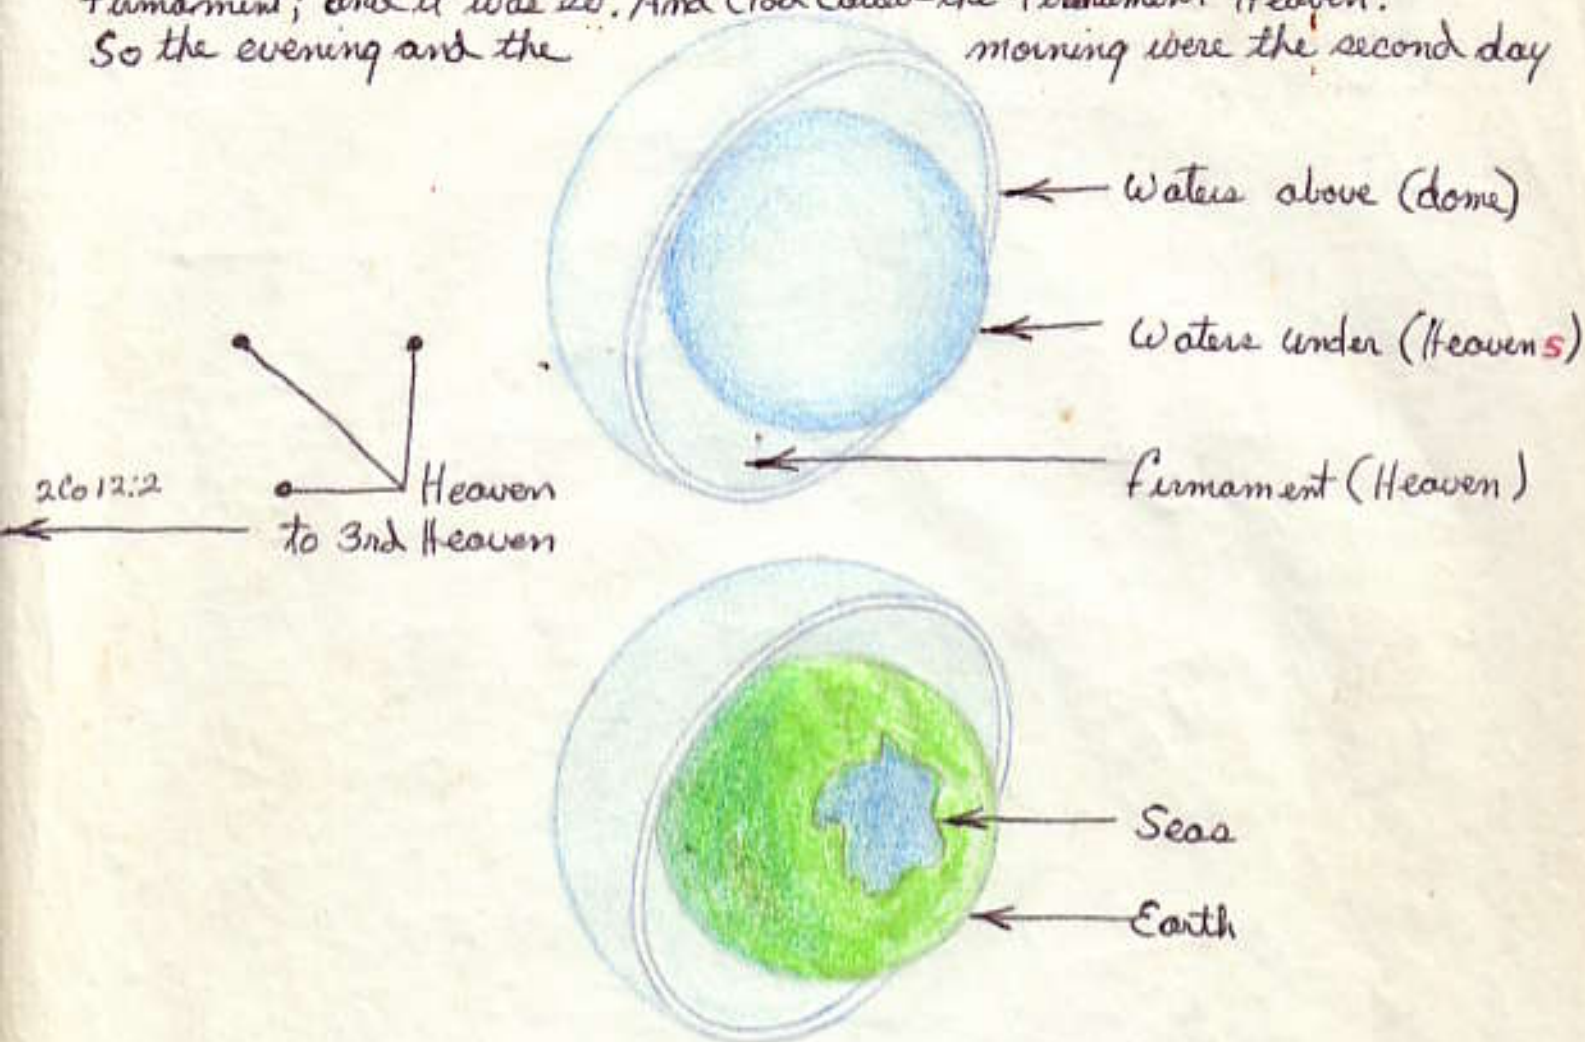 Firmament; and it was so. And God called the Firmament Heaven.
So the evening and the morning were the second day
Waters above (dome)
Waters under (Heavens)
2Co 12:2
Heaven
to 3rd Heaven
firmament (Heaven)
Seas
Earth